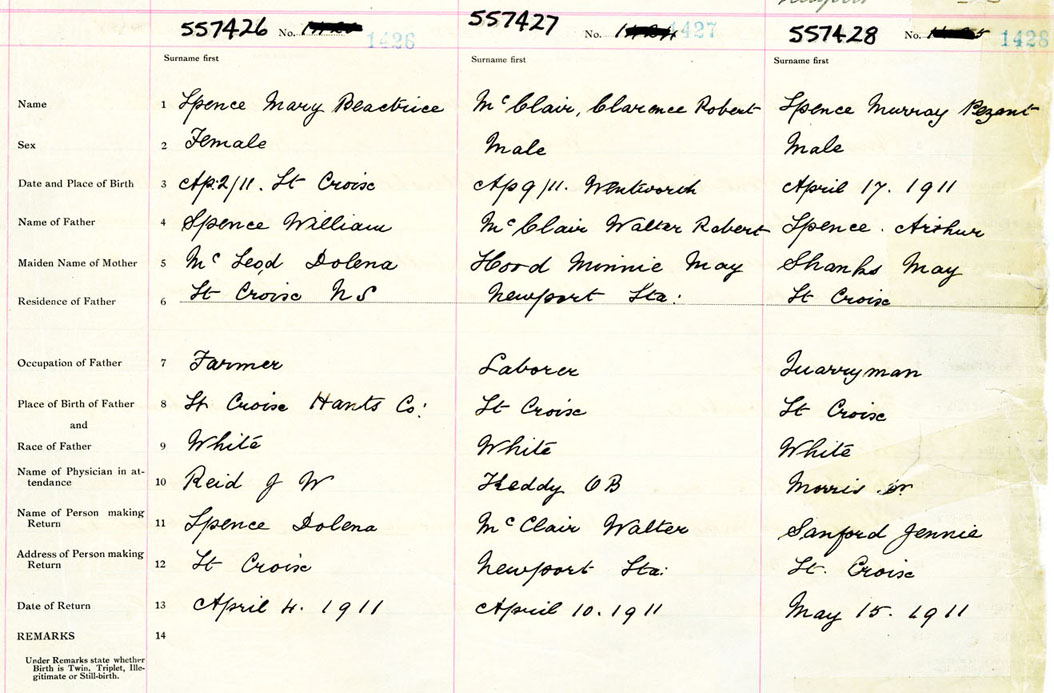 557426 No. 1426 557427 No. 1427 557428 No. 1428
Surname first Surname first Surname first
Name 1 Spence Mary Beactrice McClair, Clarence Robert Spence Murray Pezant
Sex 2 Female Male Male
Date and Place of Birth 3 Ap.2/11. St Croise Ap 9/11. Wentworth April 17. 1911
Name of Father 4 Spence William McClair Walter Robert Spence. Arthur
Maiden Name of Mother 5 McLeod Dolena Hood Minnie May Shanks May
Residence of Father 6 St Croise NS Newport Sta: St Croise
Occupation of Father 7 Farmer Laborer Quarryman
Place of Birth of Father 8 St Croise Hants Co: St Croise St Croise
and
Race of Father 9 White White White
Name of Physician in at-
tendance 10 Reid J W Keddy O B Morris Dr
Name of Person making
Return 11 Spence Dolena McClair Walter Sanford Jennie
Address of Person making
Return 12 St Croise Newport Sta: St. Croise
Date of Return 13 April 4. 1911 April 10. 1911 May 15. 1911
REMARKS 14
Under Remarks state whether
Birth is Twin, Triplet, Ille-
gitimate or Still-birth.